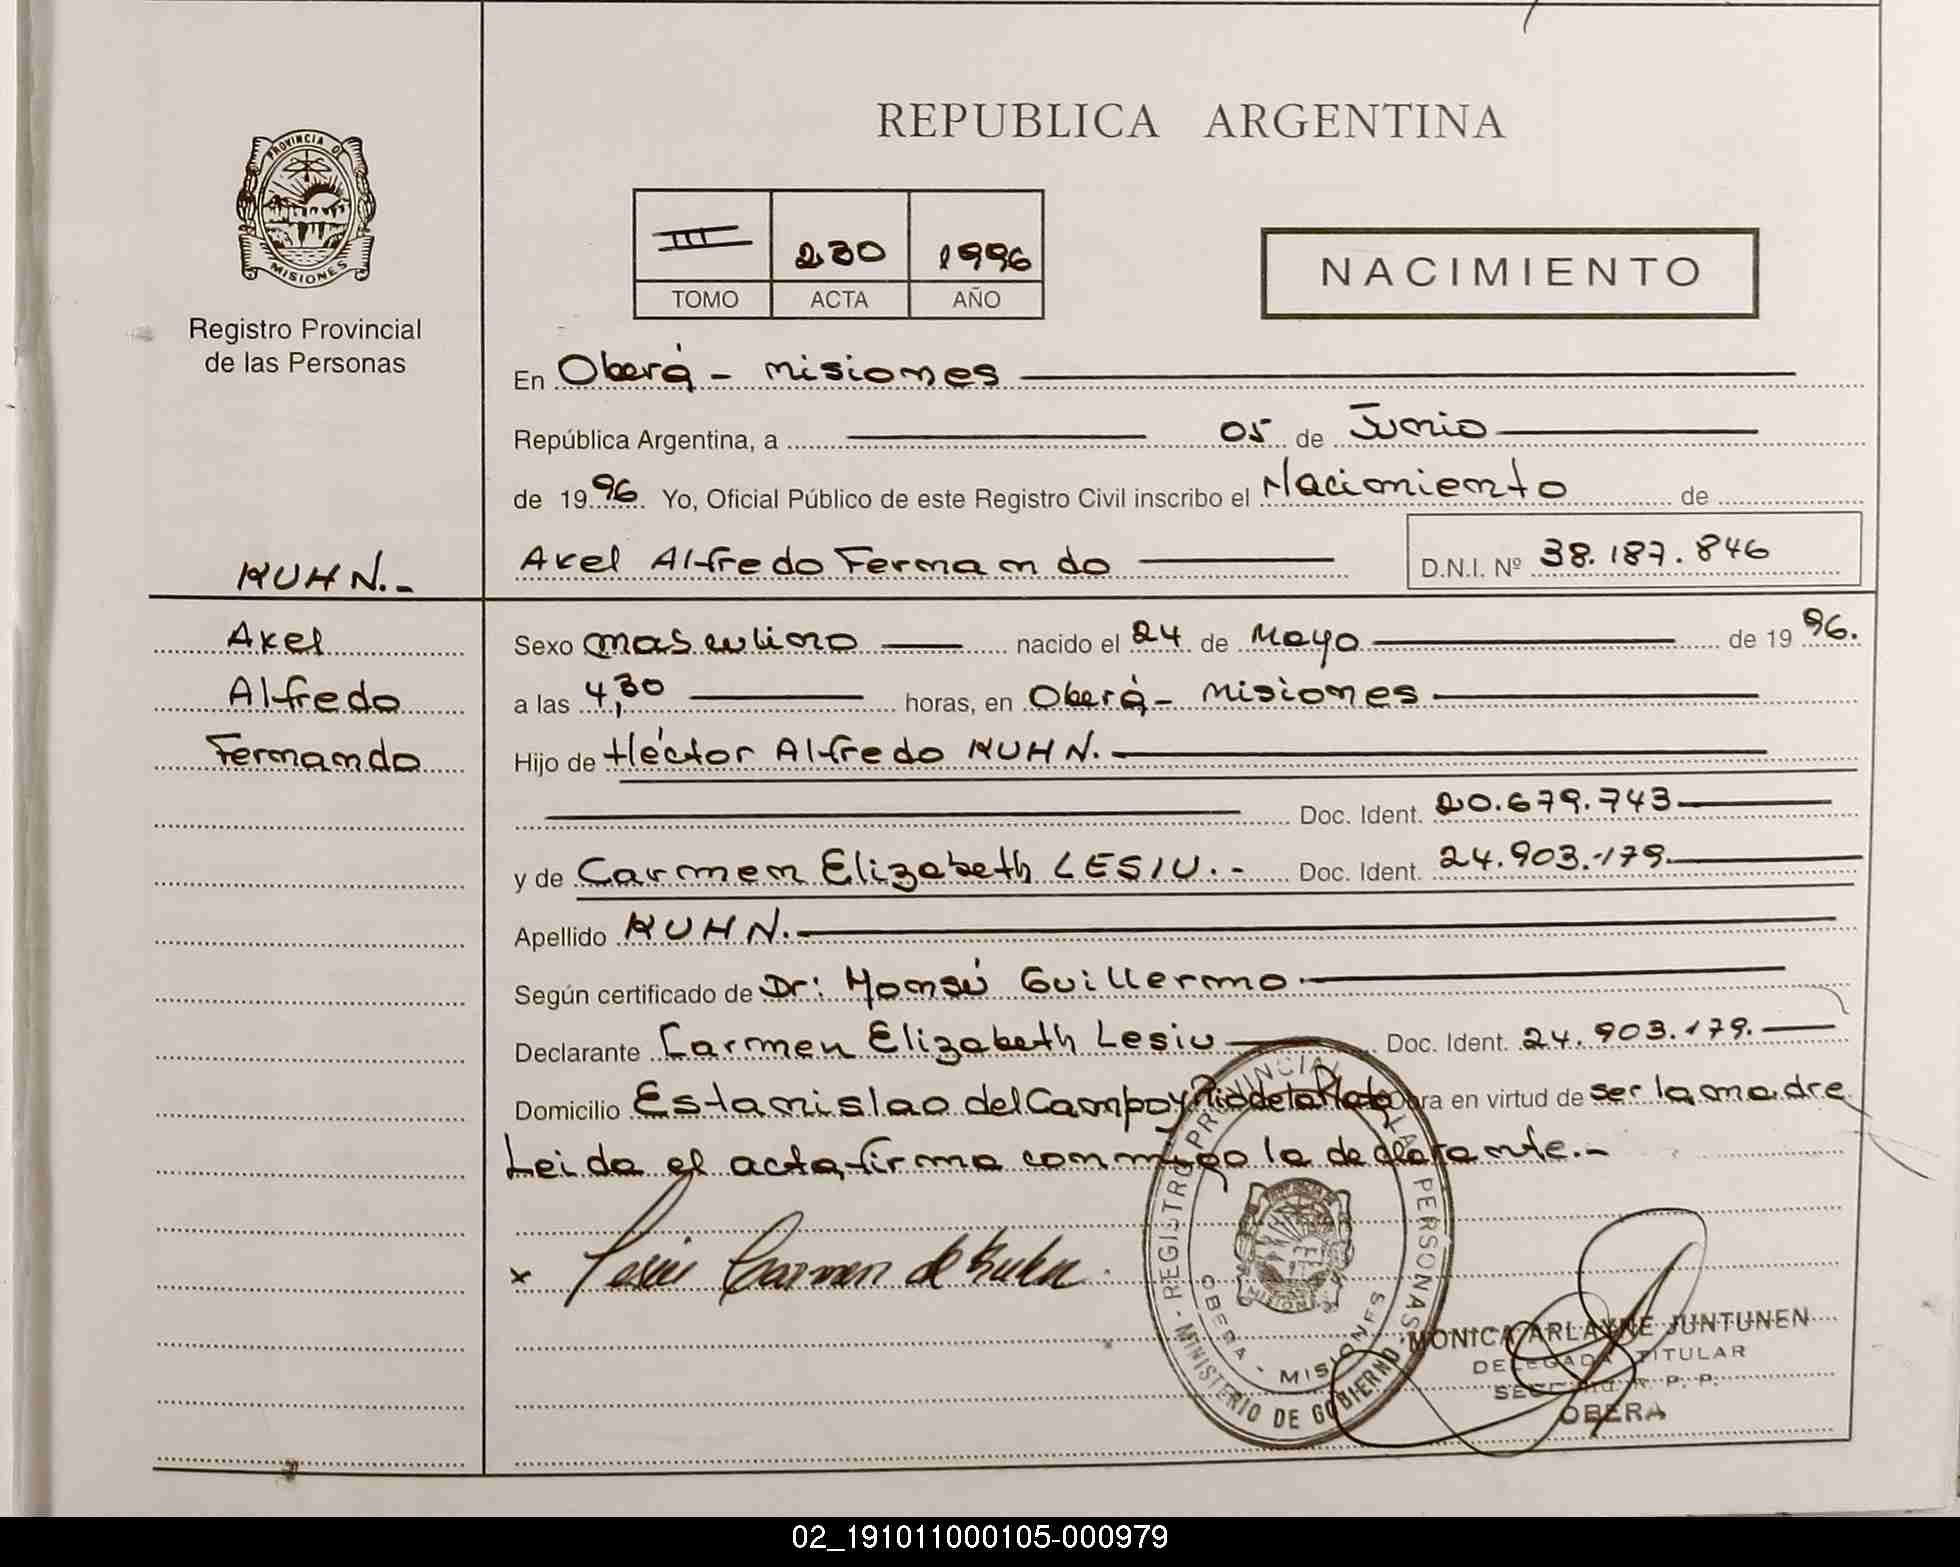 PROVINCIA DE
MISIONES
Registro Provincial
de las Personas
REPUBLICA ARGENTINA
III 230 1996
TOMO ACTA AÑO
NACIMIENTO
En Oberá - Misiones
República Argentina, a 05 de Junio
de 1996. Yo, Oficial Público de este Registro Civil inscribo el Nacimiento de
Axel Alfredo Fernando D.N.I. Nº 38.187.846
KUHN.-
Axel
Alfredo
Fernando
Sexo masculino nacido el 24 de Mayo de 19 96.
a las 4,30 horas, en Oberá - Misiones
Hijo de Héctor Alfredo KUHN.
Doc. Ident. 20.679.743
y de Carmen Elizabeth LESIU.- Doc. Ident. 24.903.179.
Apellido KUHN.
Según certificado de Dr: Guillermo
Declarante Carmen Elizabeth Lesiu Doc. Ident. 24.903.179.
Domicilio Estanislao del Campo y Rio de la Plata Obra en virtud de ser la madre
Leida el acta, firma conmigo la declarante.-
x Lesiu Carmen de Kuhn
REGISTRO PROVINCIAL DE LAS PERSONAS
MINISTERIO DE GOBIERNO
OBERA - MISIONES
MISIONES
MONICA ARLAYNE JUNTUNEN
DELEGADA TITULAR
R. P. P.
OBERA
02_191011000105-000979